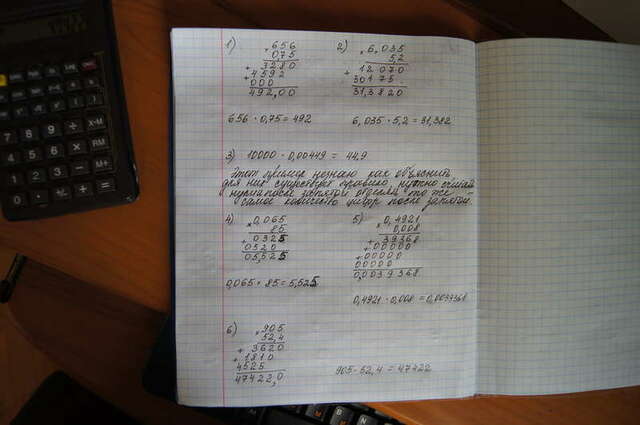 1)
×656
0,75
+3280
+4592
000
492,00
656 · 0,75 = 492
2)
×6,035
5,2
+12070
30175
31,3820
6,035 · 5,2 = 31,382
3) 10000 · 0,00449 = 44,9
Этот пример незнаю как объяснить
для них существует правило, нужно
после запятой то же
самое количество цифр после запятой.
4)
×0,065
85
+0325
0520
05,525
0,065 · 85 = 5,525
5)
×0,4921
0,008
+39368
+00000
+00000
00000
0,0039368
0,4921 · 0,008 = 0,0039368
6)
×905
52,4
+3620
+1810
4525
47422,0
905 · 52,4 = 47422
7
8
9
÷
X-M
4
5
6
×
RM
1
2
3
-
M+
0